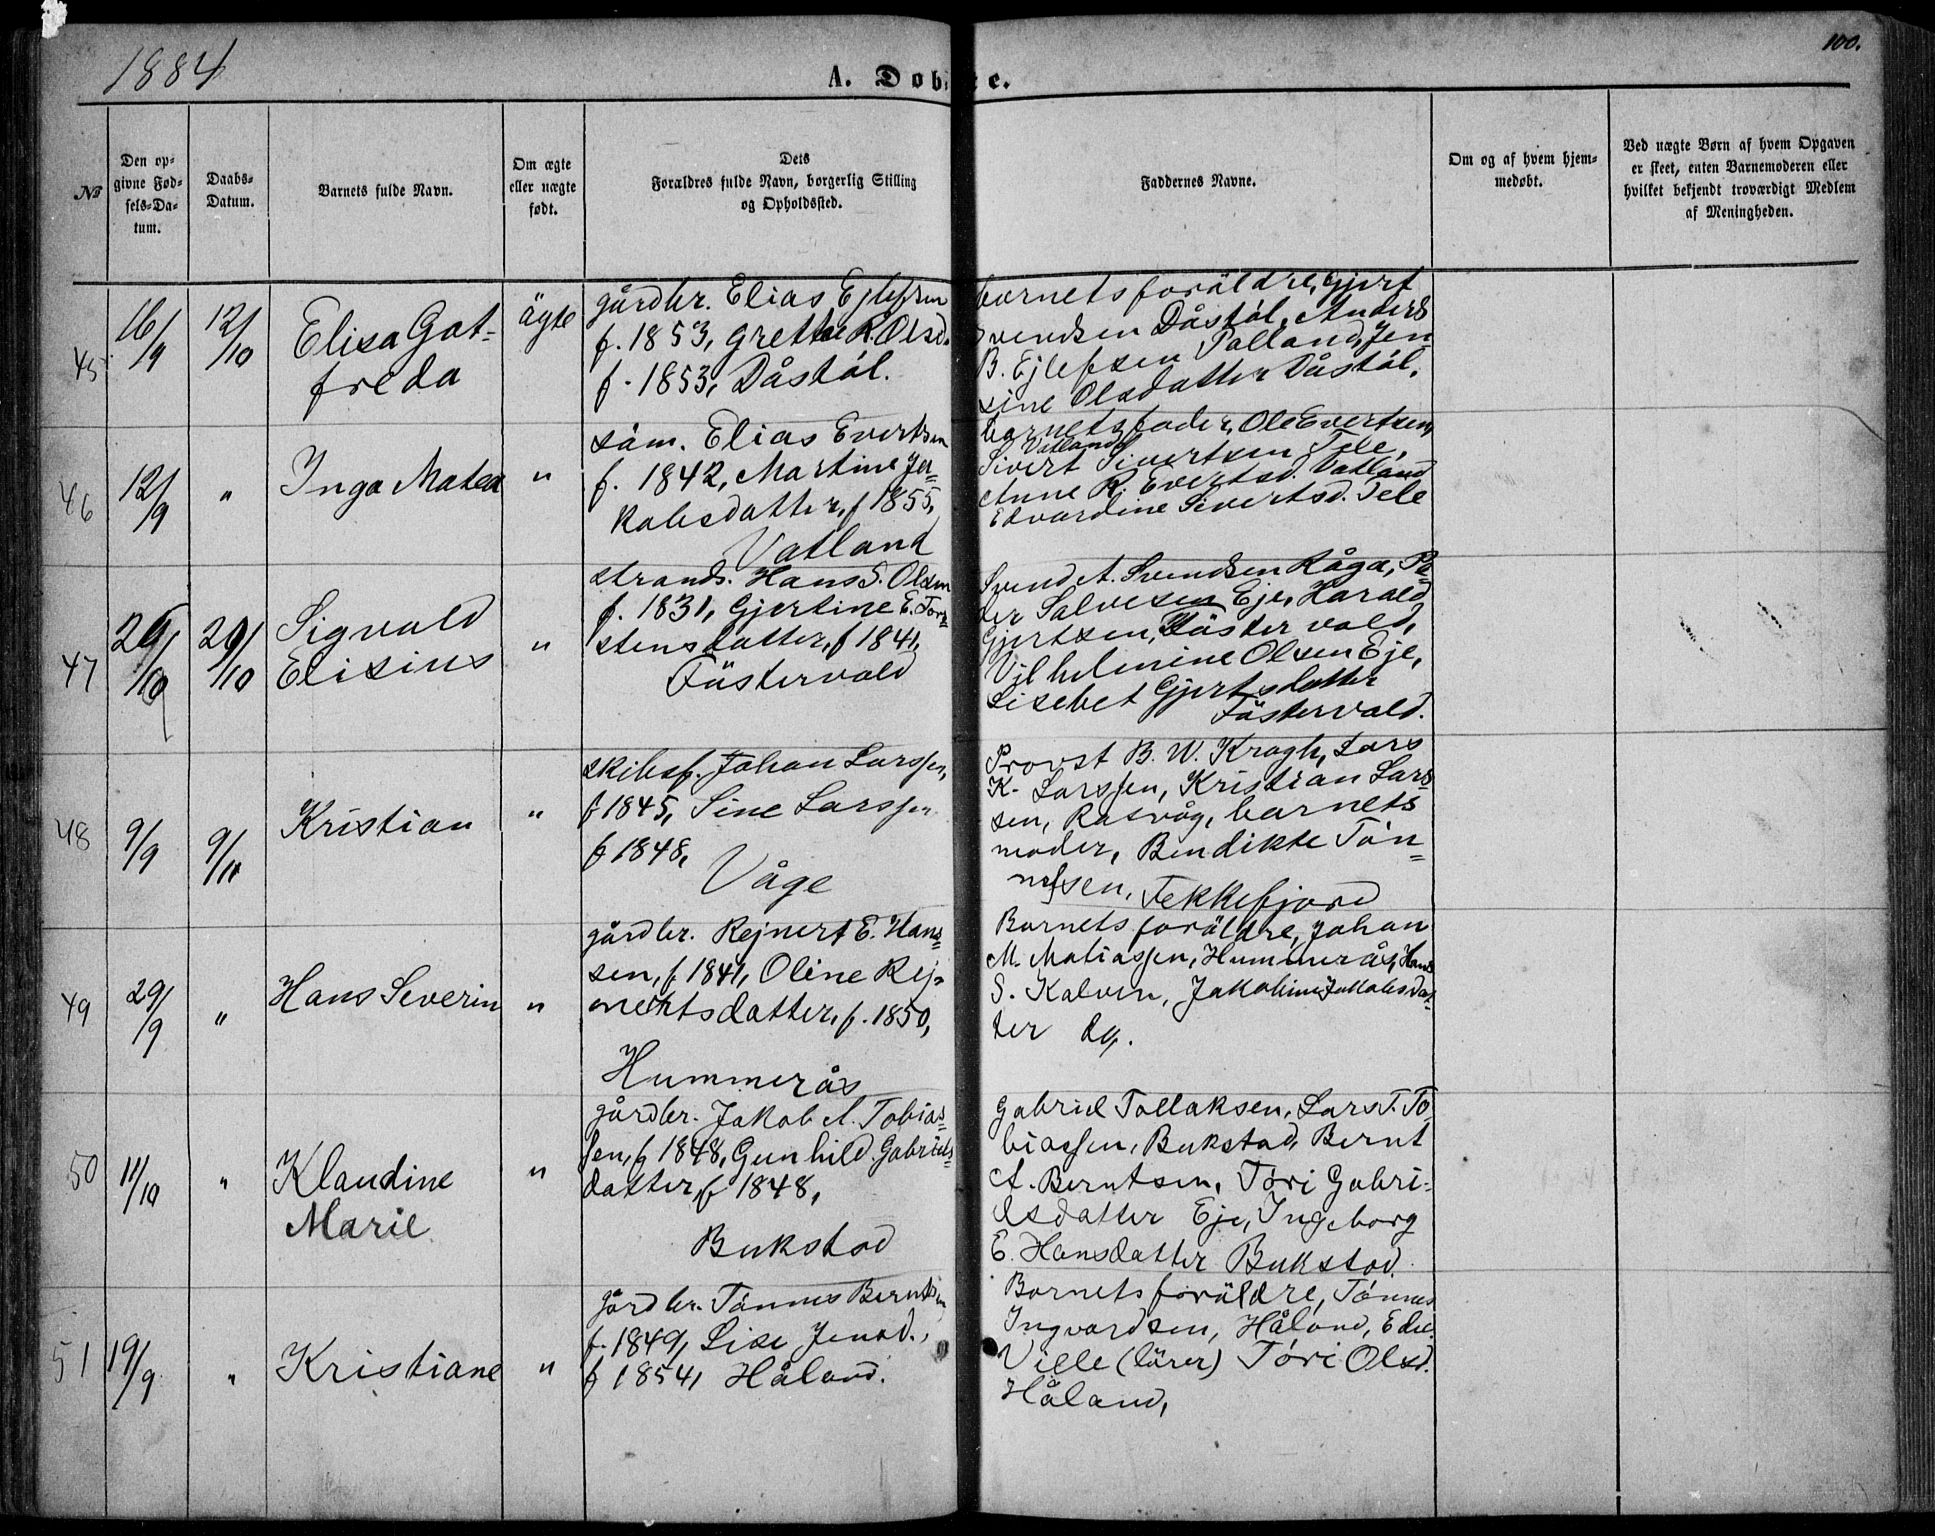 1884
A. Døb e.
100.
№
Den op-
givne Fød-
sels-Da-
tum.
Daabs-
Datum.
Barnets fulde Navn.
Om ægte
eller uægte
født.
Dets
Forældres fulde Navn, borgerlig Stilling
og Opholdssted.
Faddernes Navne.
Om og af hvem hjem-
medøbt.
Ved uægte Børn af hvem Opgaven
er skeet, enten Barnemoderen eller
hvilket bekjendt troværdigt Medlem
af Menigheden.
45
16/9
12/10
Elisa Got-
freda
ägte
gårdbr. Elias Ejlefsen
f. 1853, Grethe R. Olsd.
f. 1853, Dåstöl.
barnets foräldre, Gjert
Svendsen Dåstöl, Anders
B. Ejlefsen Tolland, Jen-
sine Olsdatter Dåstöl.
46
12/9
"
Inga Matea
"
säm. Elias Evertsen
f. 1842, Martine Ja-
kobsdatter, f 1855,
Vatland
barnets fader, Ole Evertsen
Vatland
Sivert Sivertsen Tele,
Anne R. Evertsd. Vatland
Edvardine Sivertsd. Tele
47
29/10
Sigvald
Elisius
"
strands. Hans S. Olsen
f. 1831, Gjertine E. Tor-
stensdatter, f 1841,
Füstervold
Svend A. Svendsen Råga, Pe-
der Salvesen Eje, Harald
Gjertsen, Füstervold,
Vilhelmine Olsen Eje,
Lisebet Gjertsdatter
Füstervold.
48
9/9
9/11
Kristian
"
skibsf. Johan Larssen,
f 1845, Sine Larssen
f 1848,
Våge
Provst B. W. Krogh, Lars
K. Larssen, Kristian Lars-
sen, Rasvåg, barnets
moder, Bendikte Tön-
nesen, Fekkefjord
49
29/9
"
Hans Severin
"
gårdbr. Rejnert E. Hans-
sen, f 1841, Oline Rej-
nertsdatter, f. 1850,
Hummerås
Barnets foräldre, Johan
M. Matiassen, Hummerås, Hans
S. Kalven, Jakobine Jakobsdat-
ter dg.
50
11/10
"
Klaudine
Marie
"
gårdbr. Jakob A. Tobias-
sen, f 1848, Gunhild Gabriels-
datter, f 1848,
Bukstad
Gabriel Tollaksen, Lars T. To
biassen, Bukstad, Bernt
A. Berntsen, Töri Gabri-
elsdatter Eje, Ingeborg
E. Hansdatter Bukstad.
51
19/9
"
Kristiane
"
gårdbr. Tönnes Berntsen
f. 1849, Lise Jensd.,
f 1854, Håland.
Barnets foräldre, Tönnes
Ingvardsen, Håland, Edv.
Ville (lärer) Töri Olsd.
Håland,